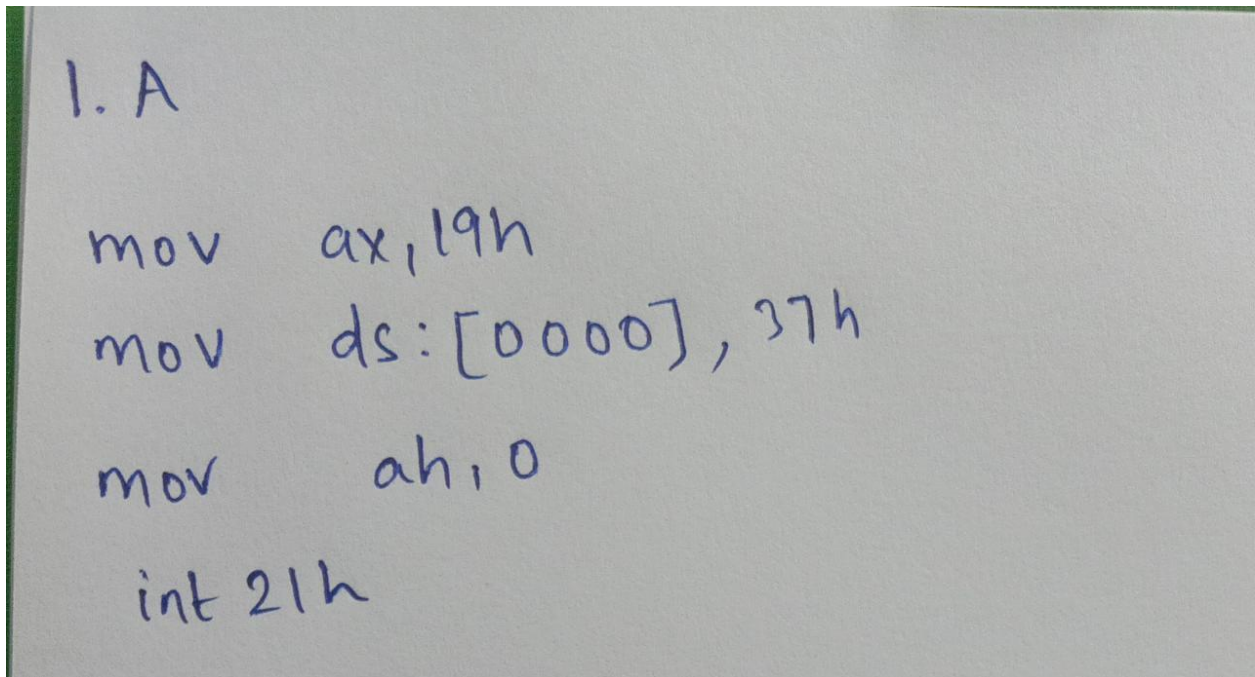 1. A
mov ax, 19h
mov ds:[0000], 37h
mov ah, 0
int 21h